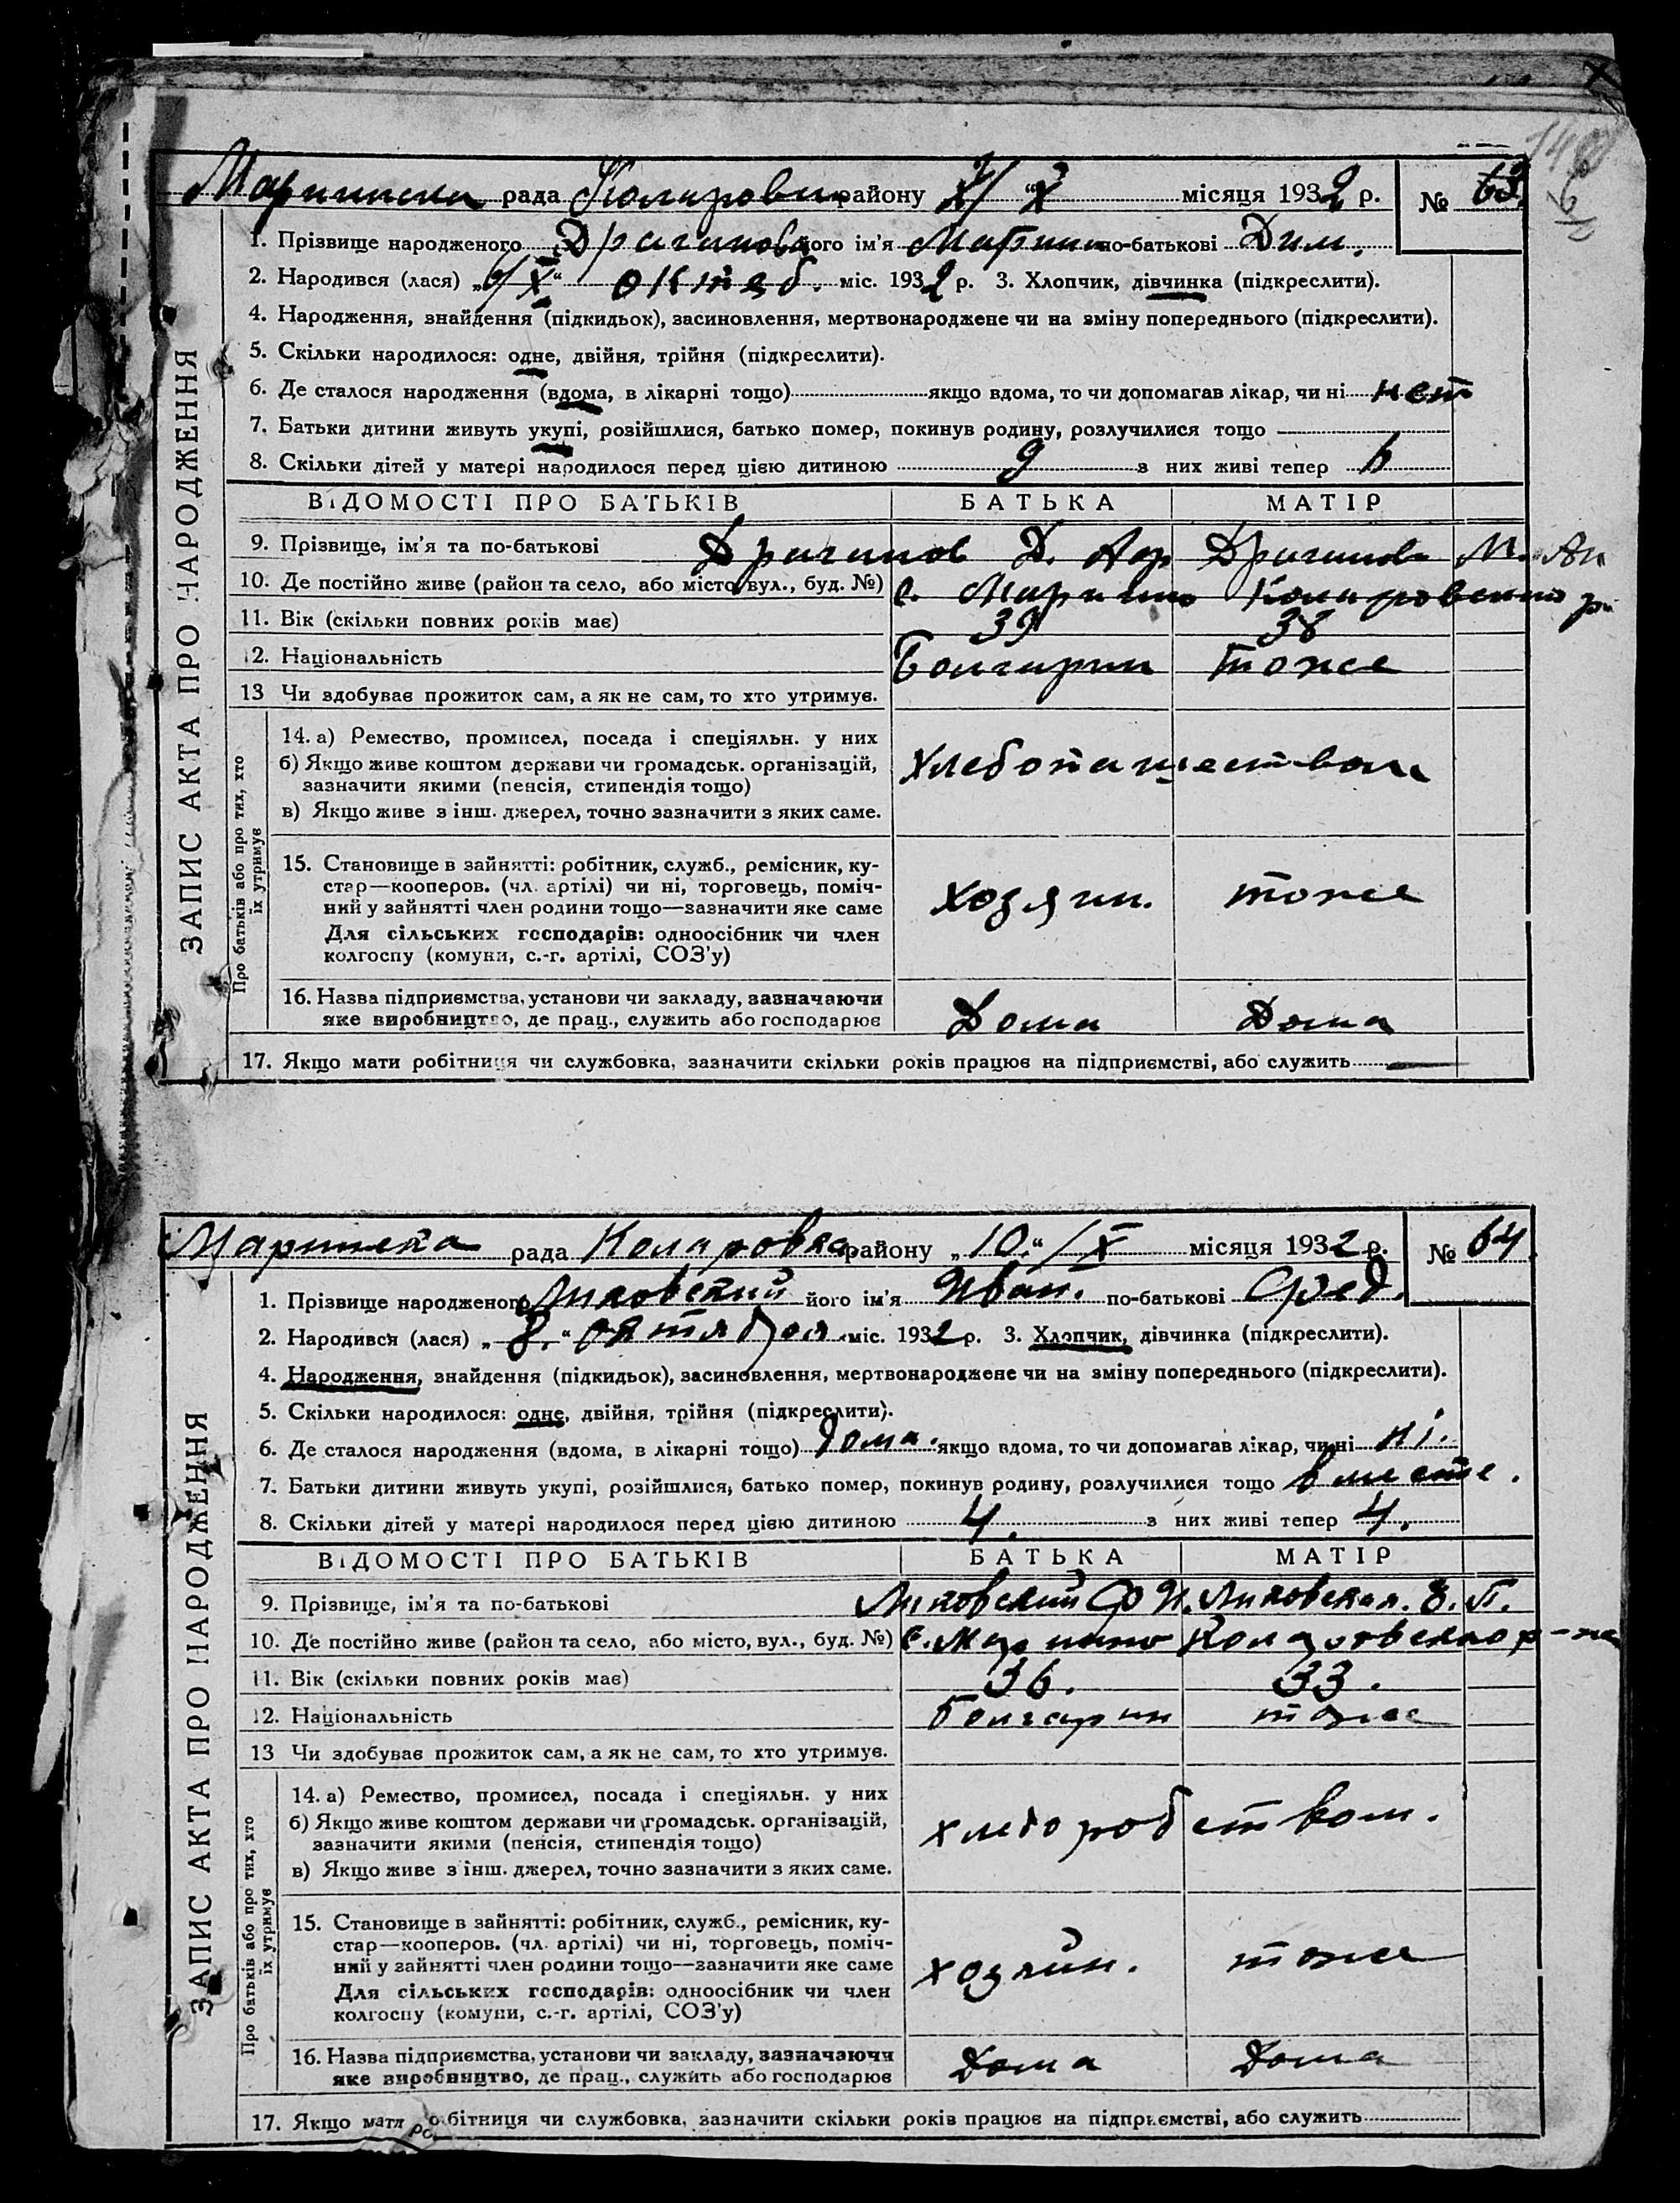 рада Коларовка району Х місяця 1932 р. № 63
1. Прізвище народженого Драгинова його ім'я Марина по-батькові Дим.
2. Народився (лася) „ “ октяб. міс. 1932 р. 3. Хлопчик, дівчинка (підкреслити).
4. Народження, знайдення (підкидьок), засиновлення, мертвонароджене чи на зміну попереднього (підкреслити).
5. Скільки народилося: одне, двійня, трійня (підкреслити).
6. Де сталося народження (вдома, в лікарні тощо) якщо вдома, то чи допомагав лікар, чи ні нет
7. Батьки дитини живуть укупі, розійшлися, батько помер, покинув родину, розлучилися тощо
8. Скільки дітей у матері народилося перед цією дитиною 9 з них живі тепер 6
ВІДОМОСТІ ПРО БАТЬКІВ БАТЬКА МАТІР
9. Прізвище, ім'я та по-батькові Драгинов Д. Драгинова М.
10. Де постійно живе (район та село, або місто, вул., буд. №) с. Марьино Коларовского
11. Вік (скільки повних років має) 39 38
12. Національність Болгарин тоже
13 Чи здобуває прожиток сам, а як не сам, то хто утримує.
14. а) Ремество, промисел, посада і спеціяльн. у них
б) Якщо живе коштом держави чи громадськ. організацій,
зазначити якими (пенсія, стипендія тощо)
в) Якщо живе з інш. джерел, точно зазначити з яких саме.
хлебопашеством
15. Становище в зайнятті: робітник, служб., ремісник, ку-
стар—кооперов. (чл. артілі) чи ні, торговець, поміч-
ний у зайнятті член родини тощо—зазначити яке саме
Для сільських господарів: одноосібник чи член
колгоспу (комуни, с.-г. артілі, СОЗ'у)
хозяин. тоже
16. Назва підприємства, установи чи закладу, зазначаючи
яке виробництво, де прац., служить або господарює Дома Дома
17. Якщо мати робітниця чи службовка, зазначити скільки років працює на підприємстві, або служить
ЗАПИС АКТА ПРО НАРОДЖЕННЯ
Про батьків або про тих, хто
їх утримує
рада Коларовка району „10.“ /X місяця 1932 р. № 64
1. Прізвище народженого його ім'я Иван. по-батькові Фед.
2. Народився (лася) „8.“ октября міс. 1932 р. 3. Хлопчик, дівчинка (підкреслити).
4. Народження, знайдення (підкидьок), засиновлення, мертвонароджене чи на зміну попереднього (підкреслити).
5. Скільки народилося: одне, двійня, трійня (підкреслити).
6. Де сталося народження (вдома, в лікарні тощо) дома. якщо вдома, то чи допомагав лікар, чи ні ні.
7. Батьки дитини живуть укупі, розійшлися, батько помер, покинув родину, розлучилися тощо вместе.
8. Скільки дітей у матері народилося перед цією дитиною 4. з них живі тепер 4.
ВІДОМОСТІ ПРО БАТЬКІВ БАТЬКА МАТІР
9. Прізвище, ім'я та по-батькові Ф И. П.
10. Де постійно живе (район та село, або місто, вул., буд. №) с. Марьино Коларовского р-на
11. Вік (скільки повних років має) 36. 33.
12. Національність болгарин тоже
13 Чи здобуває прожиток сам, а як не сам, то хто утримує.
14. а) Ремество, промисел, посада і спеціяльн. у них
б) Якщо живе коштом держави чи громадськ. організацій,
зазначити якими (пенсія, стипендія тощо)
в) Якщо живе з інш. джерел, точно зазначити з яких саме.
хлеборобством.
15. Становище в зайнятті: робітник, служб., ремісник, ку-
стар—кооперов. (чл. артілі) чи ні, торговець, поміч-
ний у зайнятті член родини тощо—зазначити яке саме
Для сільських господарів: одноосібник чи член
колгоспу (комуни, с.-г. артілі, СОЗ'у)
хозяин. тоже
16. Назва підприємства, установи чи закладу, зазначаючи
яке виробництво, де прац., служить або господарює Дома Дома
17. Якщо мати робітниця чи службовка, зазначити скільки років працює на підприємстві, або служить
ЗАПИС АКТА ПРО НАРОДЖЕННЯ
Про батьків або про тих, хто
їх утримує